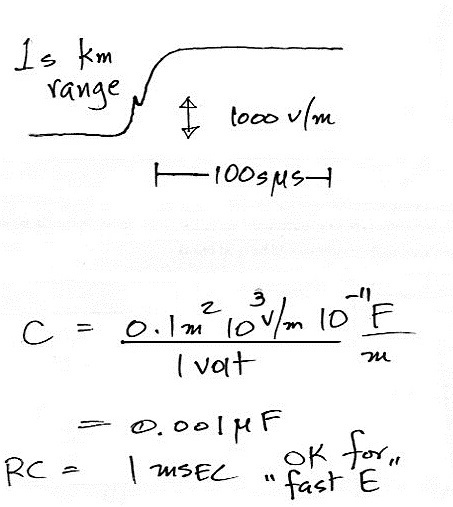 1s km
range
1000 v/m
100s μs
C = 0.1m² 10³ V/m 10⁻¹¹ F/m / 1 volt
= 0.001 μF
RC = 1 mSEC "OK for
fast E"